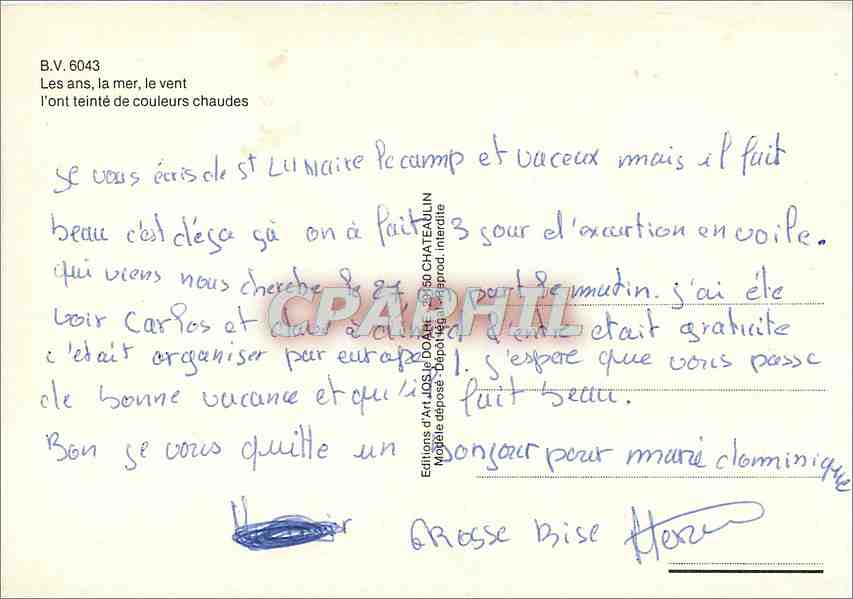 B.V. 6043
Les ans, la mer, le vent
l'ont teinté de couleurs chaudes
Je vous écris de St LUNAire le camp et vaceux mais il fait
beau c'est déja ça on à fait 3 jour d'excurtion en voile.
qui viens nous cherche le 27, part le matin. j'ai éte
voir Carlos et dave à dinard l'entre etait gratuite
c'était organiser par europe 1. j'espere que vous passe
de bonne vacance et qu'il fait beau.
Bon je vous quitte un Bonjour pour marie dominique
GROSSE BISE
Editions d'Art JOS le DOARE - 29150 CHATEAULIN
Modèle déposé - Dépôt légal - Reprod. interdite
CPAPHIL